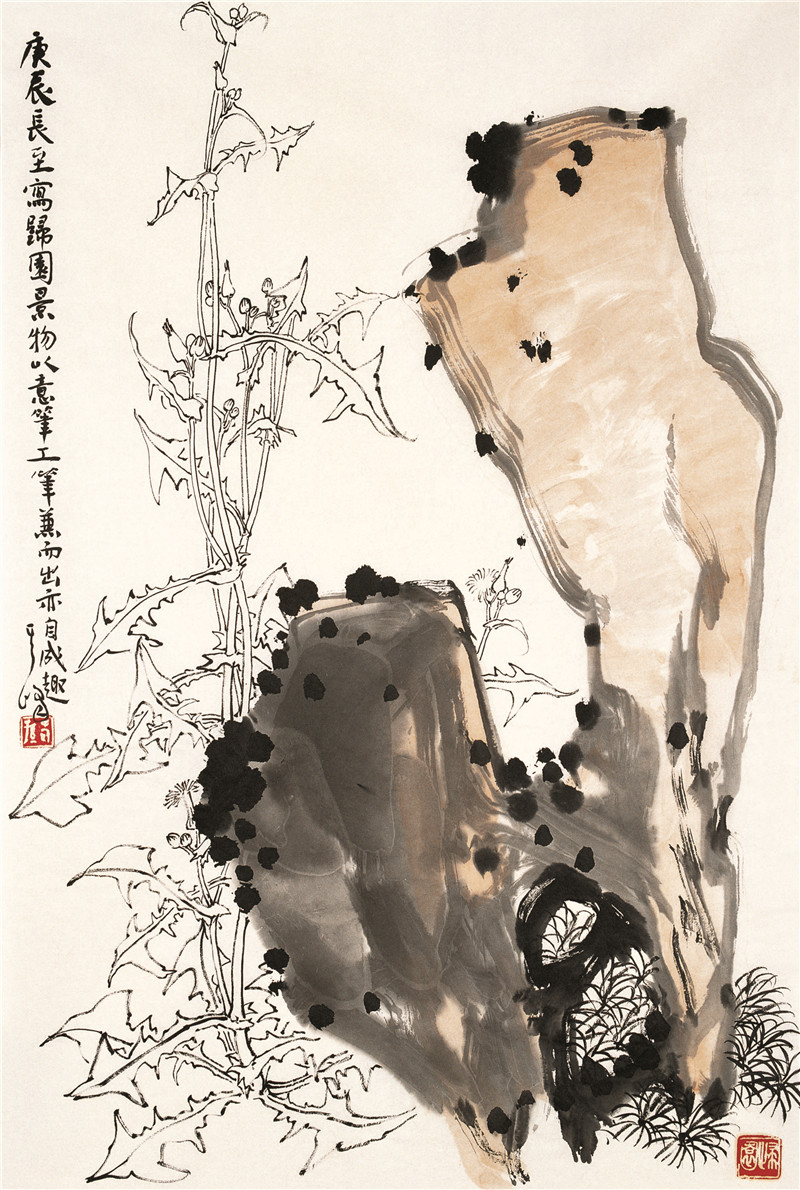 庚辰長至寫歸園景物以意筆工筆兼而出亦自成趣